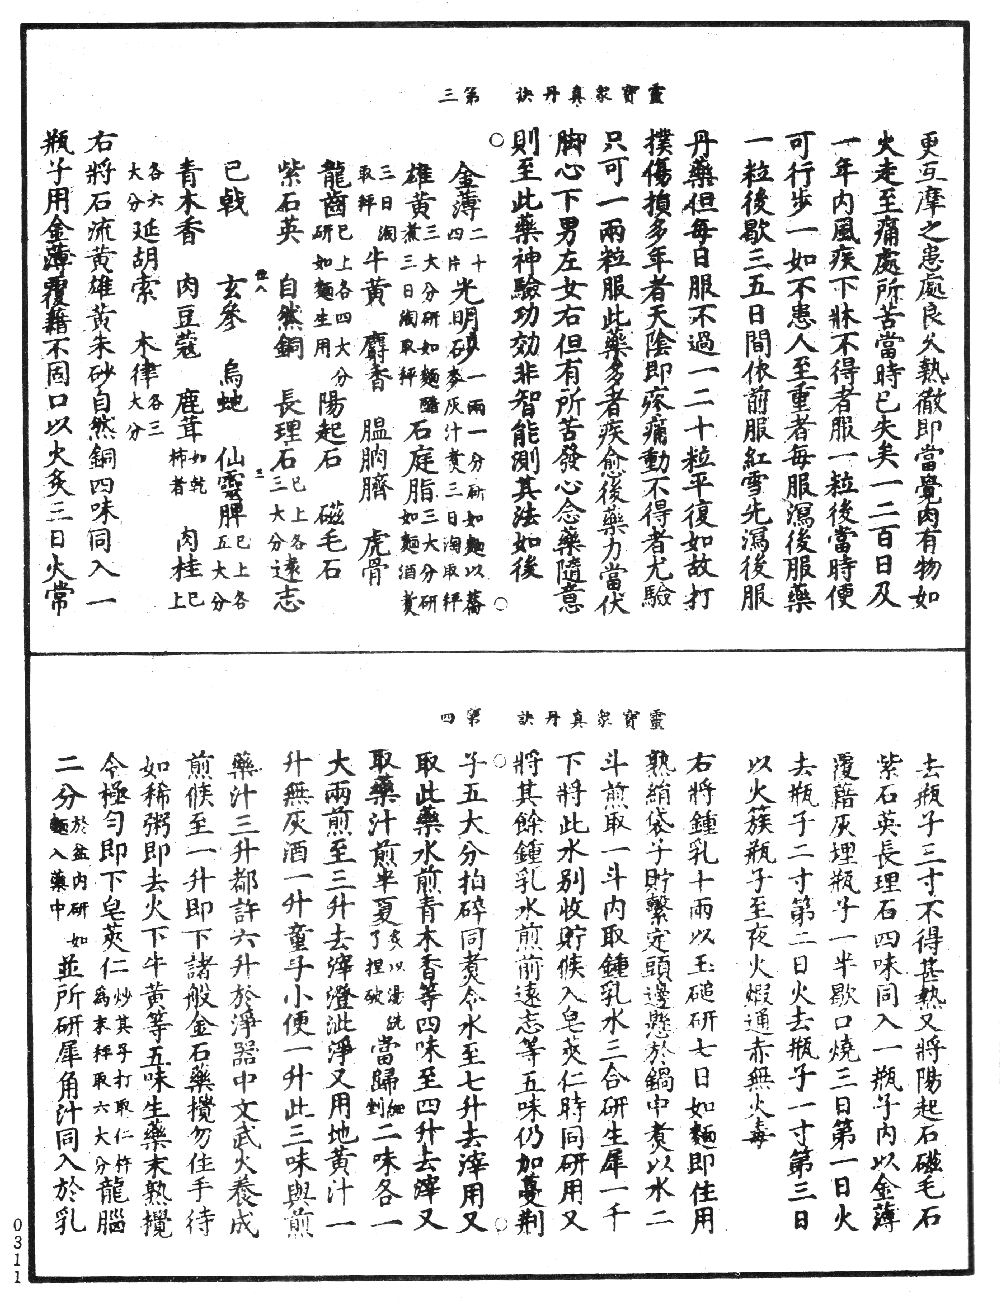 靈寶衆真丹訣　第三
更互摩之患處良久熟徹即當覺肉有物如
火走至痛處所苦當時已失矣一二百日及
一年內風疾下牀不得者服一粒後當時便
可行步一如不患人至重者每服瀉後服藥
一粒後歇三五日間依前服紅雪先瀉後服
丹藥但每日服不過一二十粒平復如故打
撲傷損多年者天陰即疼痛動不得者尤驗
只可一兩粒服此藥多者疾愈後藥力當伏
脚心下男左女右但有所苦發心念藥隨意
則至此藥神驗功効非智能測其法如後
金薄二十四片光明砂一兩一分研如麵以蕎麥灰汁煑三日淘取秤
雄黃三大分研如麵醋煑三日淘取秤石庭脂三大分研如麵酒煑
三日淘取秤牛黃　麝香　膃肭臍　虎骨
龍齒已上各四大分研如麵生用陽起石　磁毛石
紫石英　自然銅　長理石已上各三大分遠志
巳戟　玄參　烏虵　仙靈脾已上各五大分
青木香　肉豆蔻　鹿茸如乾柿者　肉桂已上
各六大分延胡索　木律各三大分
右將石流黃雄黃朱砂自然銅四味同入一
瓶子用金薄覆藉不固口以火炙三日火常
靈寶衆真丹訣　第四
去瓶子三寸不得甚熱又將陽起石磁毛石
紫石英長理石四味同入一瓶子內以金薄
覆藉灰埋瓶子一半歇口燒三日第一日火
去瓶子二寸第二日火去瓶子一寸第三日
以火簇瓶子至夜火煅通赤無火毒
右將鍾乳十兩以玉槌研七日如麵即住用
熟絹袋子貯繫定頭邊懸於鍋中煑以水二
斗煎取一斗內取鍾乳水三合研生犀一千
下將此水別收貯候入皂莢仁時同研用又
將其餘鍾乳水煎前遠志等五味仍加蔓荆
子五大分拍碎同煑令水至七升去滓用又
取此藥水煎青木香等四味至四升去滓又
取藥汁煎半夏炙以湯洗了揑破當歸細剉二味各一
大兩煎至三升去滓澄泚淨又用地黃汁一
升無灰酒一升童子小便一升此三味與煎
藥汁三升都許六升於淨器中文武火養成
煎候至一升即下諸般金石藥攪勿住手待
如稀粥即去火下牛黃等五味生藥末熟攪
令極勻即下皂莢仁炒其子打取仁杵爲末秤取六大分龍腦
二分於盆內研如麵入藥中並所研犀角汁同入於乳
0311